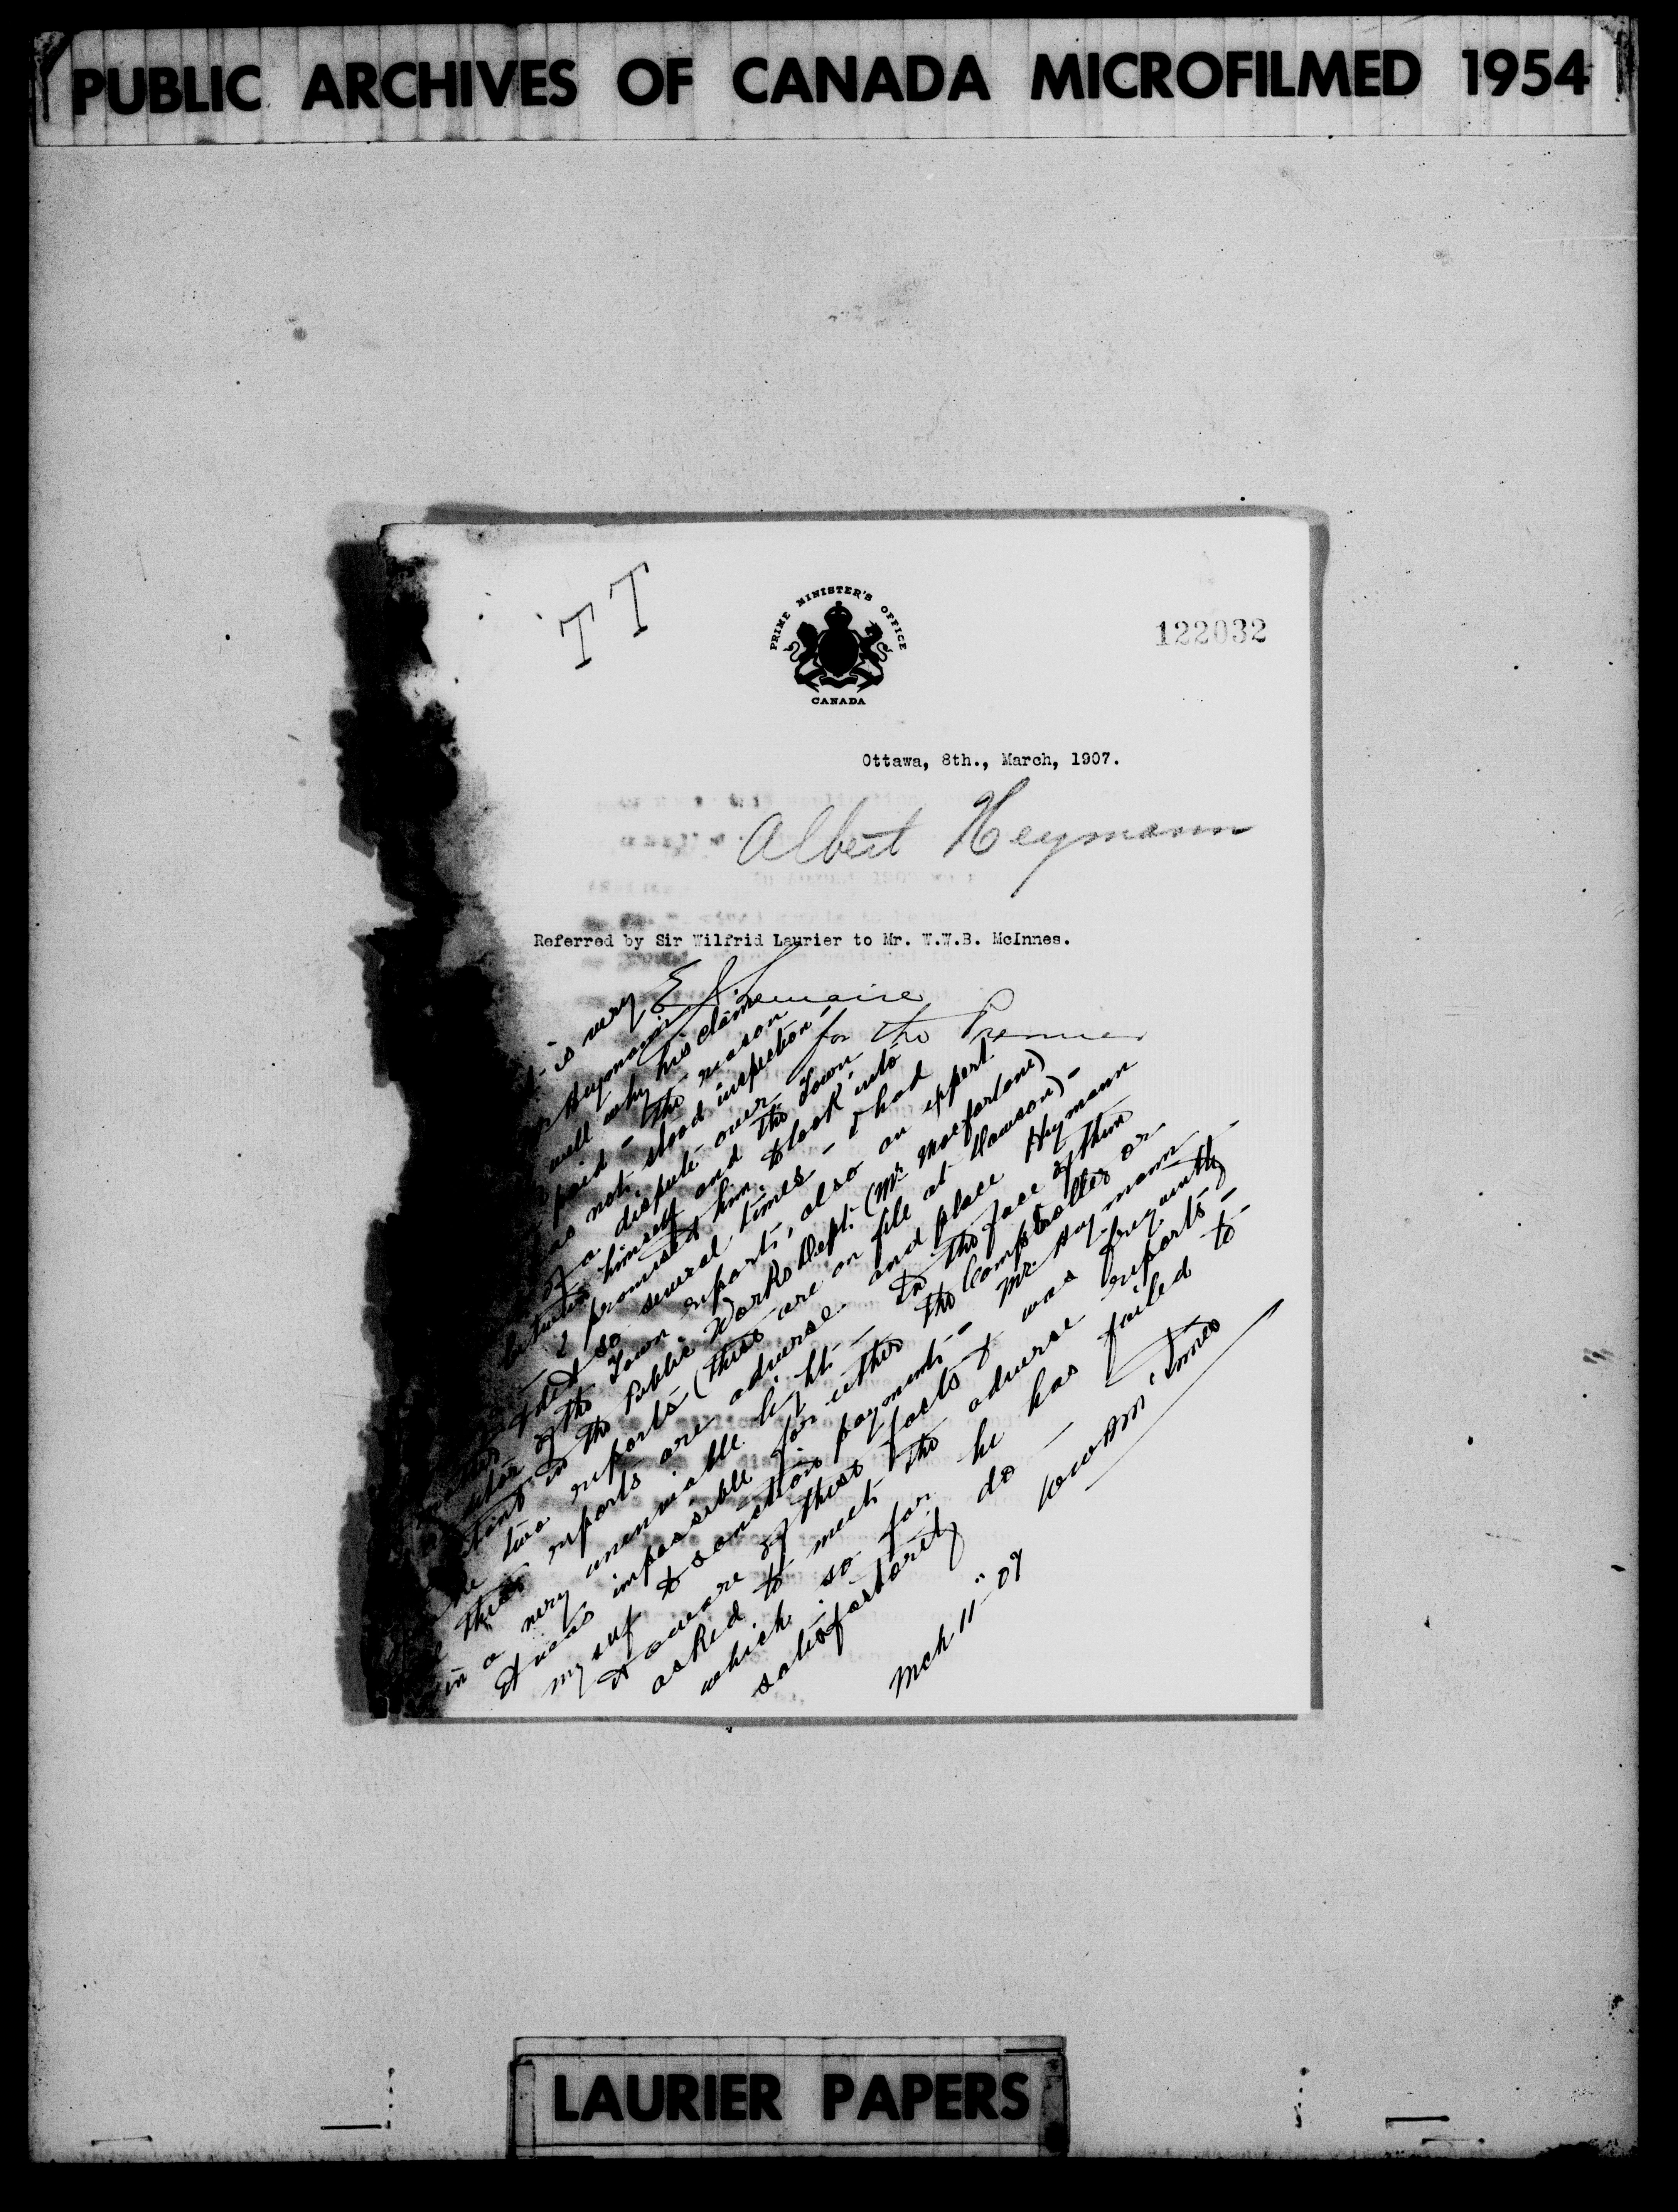 PUBLIC ARCHIVES OF CANADA MICROFILMED 1954
T T
PRIME MINISTER'S OFFICE
CANADA
122032
Ottawa, 8th., March, 1907.
Albert Heymann
Referred by Sir Wilfrid Laurier to Mr. W.W.B. McInnes.
E J Lemaire
for the Premier
is very
Heymann
well why his claim
paid - the reason
as not stood inspection'
of a dispute over
between himself and the Town
- I promised him to look into
it so several times - I had
of the Town reports, also an expert
in the Public Works Dept. (Mr Macfarlane)
two reports (these are on file at Dawson) -
these reports are adverse and place Heymann
in a very unenviable light - In the face of them
it was impossible for either the Comptroller or
myself to sanction payment - Mr. Heymann
is aware of these facts & was frequently
asked to meet the adverse reports -
which so far he has failed to
satisfactorily do -
WWB McInnes
Mch 11" 07
LAURIER PAPERS